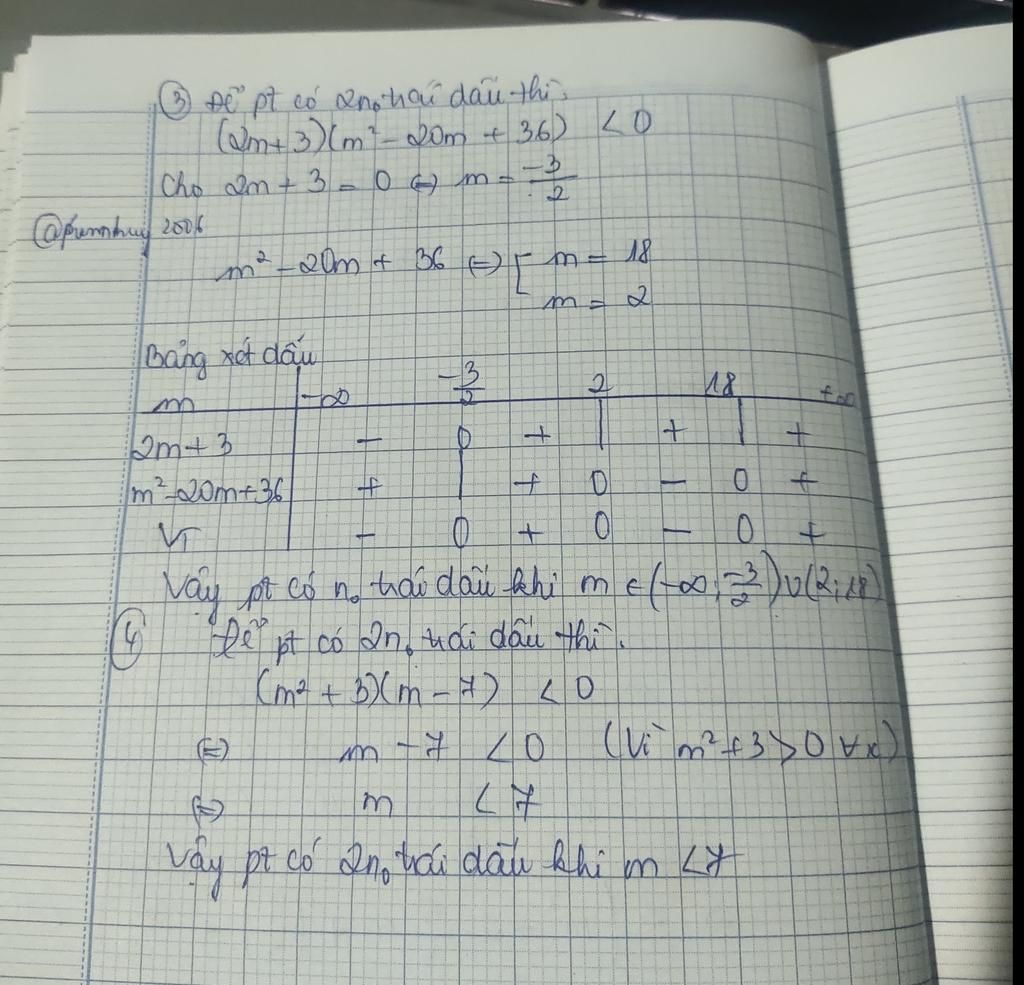 ③ Để pt có 2n₀ trái dấu thì:
(2m+3)(m² - 20m + 36) < 0
Cho 2m + 3 = 0 ⇔ m = -3/2
2006
m² - 20m + 36 ⇔ [ m = 18
m = 2
Bảng xét dấu
m | -∞ -3/2 2 18 +∞
2m+3 | - 0 + | + | +
m²-20m+36 | + | + 0 - 0 +
VT | - 0 + 0 - 0 +
Vậy pt có n₀ trái dấu khi m ∈ (-∞; -3/2) ∪ (2; 18)
④ Để pt có 2n₀ trái dấu thì:
(m² + 3)(m - 7) < 0
⇔ m - 7 < 0 (Vì m² + 3 > 0 ∀x)
⇔ m < 7
Vậy pt có 2n₀ trái dấu khi m < 7